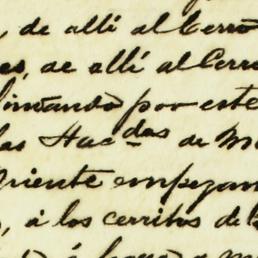 , de allí al Cerro
es, de allí al Cerr
lindando por este
las Hac.das de M
Oriente empezan
, á los cerritos de